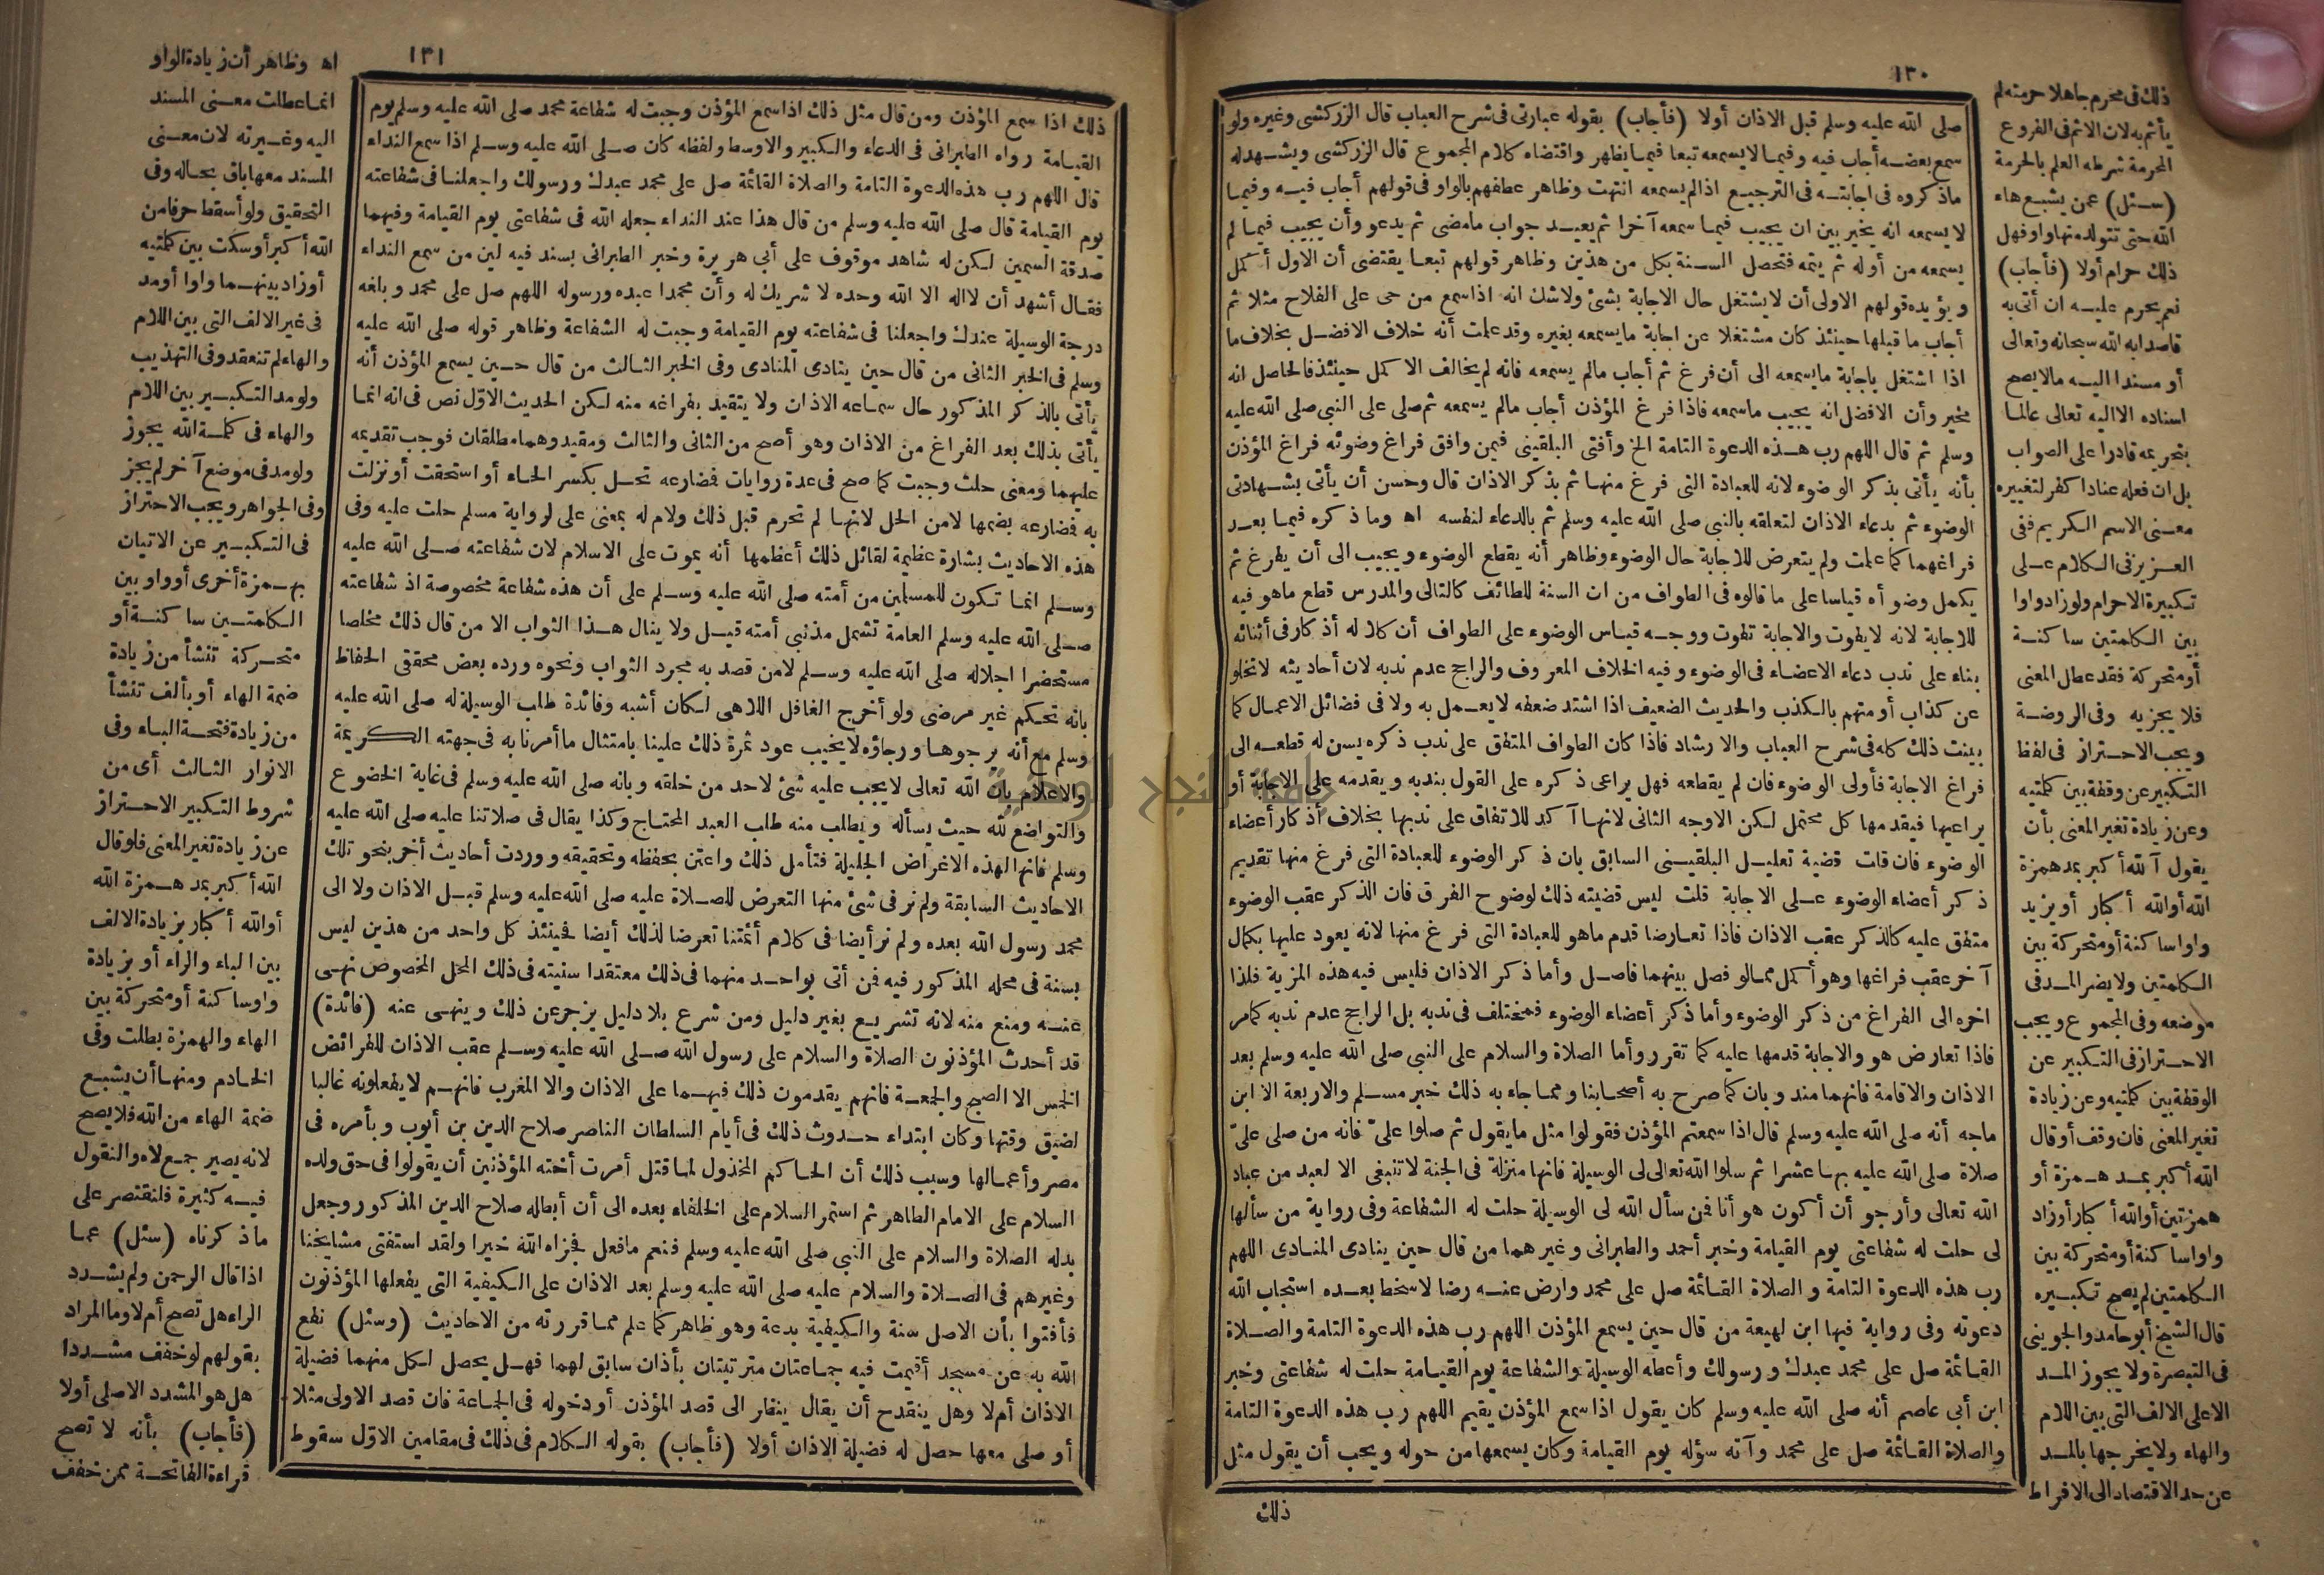 ١٣٠
صلى الله عليه وسلم قبل الاذان أولا (فأجاب) بقوله عبارتى فى شرح العباب قال الزركشى وغيره ولو
سمع بعضه أجاب فيه وفيما لا يسمعه تبعا فيما يظهر واقتضاه كلام المجموع قال الزركشى ويشهد له
ماذكروه فى اجابته فى الترجيع اذا لم يسمعه انتهت وظاهر عطفهم بالواو فى قولهم أجاب فيه وفيما
لا يسمعه انه يخير بين ان يجيب فيما سمعه آخرا ثم يعيد جواب ما مضى ثم يدعو وأن يجيب فيما لم
يسمعه من أوله ثم يتمه فتحصل السنة بكل من هذين وظاهر قولهم تبعا يقتضى أن الاول أكمل
ويؤيده قولهم الاولى أن لا يشتغل حال الاجابة بشئ ولا شك انه اذا سمع من حى على الفلاح مثلا ثم
أجاب ما قبلها حينئذ كان مشتغلا عن اجابة ما يسمعه بغيره وقد علمت أنه خلاف الافضل بخلاف ما
اذا اشتغل باجابة ما يسمعه الى أن فرغ ثم أجاب مالم يسمعه فانه لم يخالف الاكمل حينئذ فالحاصل انه
مخير وأن الافضل انه يجيب ما سمعه فاذا فرغ المؤذن أجاب مالم يسمعه ثم صلى على النبى صلى الله عليه
وسلم ثم قال اللهم رب هذه الدعوة التامة الخ وأفتى البلقينى فيمن وافق فراغ وضوئه فراغ المؤذن
بأنه يأتى بذكر الوضوء لانه للعبادة التى فرغ منها ثم بذكر الاذان قال وحسن أن يأتى بشهادتى
الوضوء ثم بدعاء الاذان لتعلقه بالنبى صلى الله عليه وسلم ثم بالدعاء لنفسه اه وما ذكره فيما بعد
فراغهما كما علمت ولم يتعرض للاجابة حال الوضوء وظاهر أنه يقطع الوضوء ويجيب الى أن يفرغ ثم
يكمل وضوأه قياسا على ما قالوه فى الطواف من ان السنة للطائف كالتالى والمدرس قطع ماهو فيه
للاجابة لانه لا يفوت والاجابة تفوت ووجه قياس الوضوء على الطواف أن كلا له أذكار فى أثنائه
بناء على ندب دعاء الاعضاء فى الوضوء وفيه الخلاف المعروف والراجح عدم ندبه لان أحاديثه لا تخلو
عن كذاب أو متهم بالكذب والحديث الضعيف اذا اشتد ضعفه لا يعمل به ولا فى فضائل الاعمال كما
بينت ذلك كله فى شرح العباب والارشاد فاذا كان الطواف المتفق على ندب ذكره يسن له قطعه الى
فراغ الاجابة فأولى الوضوء فان لم يقطعه فهل يراعى ذكره على القول بندبه ويقدمه على الاجابة أو
يراعيها فيقدمها كل محتمل لكن الاوجه الثانى لانها آكد للاتفاق على ندبها بخلاف أذكار أعضاء
الوضوء فان قلت قضية تعليل البلقينى السابق بان ذكر الوضوء للعبادة التى فرغ منها تقديم
ذكر أعضاء الوضوء على الاجابة قلت ليس قضيته ذلك لوضوح الفرق فان الذكر عقب الوضوء
متفق عليه كالذكر عقب الاذان فاذا تعارضا قدم ماهو للعبادة التى فرغ منها لانه يعود عليها بكمال
آخر عقب فراغها وهو أكمل مما لو فصل بينهما فاصل وأما ذكر الاذان فليس فيه هذه المزية فلذا
اخره الى الفراغ من ذكر الوضوء وأما ذكر أعضاء الوضوء فمختلف فى ندبه بل الراجح عدم ندبه كما مر
فاذا تعارض هو والاجابة قدمها عليه كما تقرر وأما الصلاة والسلام على النبى صلى الله عليه وسلم بعد
الاذان والاقامة فانهما مندوبان كما صرح به أصحابنا ومما جاء به ذلك خبر مسلم والاربعة الا ابن
ماجه أنه صلى الله عليه وسلم قال اذا سمعتم المؤذن فقولوا مثل ما يقول ثم صلوا علىّ فانه من صلى علىّ
صلاة صلى الله عليه بها عشرا ثم سلوا الله تعالى لى الوسيلة فانها منزلة فى الجنة لا تنبغى الا لعبد من عباد
الله تعالى وأرجو أن أكون هو أنا فمن سأل الله لى الوسيلة حلت له الشفاعة وفى رواية من سألها
لى حلت له شفاعتى يوم القيامة وخبر أحمد والطبرانى وغيرهما من قال حين ينادى المنادى اللهم
رب هذه الدعوة التامة والصلاة القائمة صل على محمد وارض عنه رضا لا سخط بعده استجاب الله
دعوته وفى رواية فيها ابن لهيعة من قال حين يسمع المؤذن اللهم رب هذه الدعوة التامة والصلاة
القائمة صل على محمد عبدك ورسولك وأعطه الوسيلة والشفاعة يوم القيامة حلت له شفاعتى وخبر
ابن أبى عاصم أنه صلى الله عليه وسلم كان يقول اذا سمع المؤذن يقيم اللهم رب هذه الدعوة التامة
والصلاة القائمة صل على محمد وآته سؤله يوم القيامة وكان يسمعها من حوله ويحب أن يقول مثل
ذلك
ذلك فى محرم جاهلا حرمته لم
يأثم به لان الاثم فى الفروع
المحرمة شرطه العلم بالحرمة
(سئل) عمن يشبع هاء
الله حتى تتولد منها واو فهل
ذلك حرام أولا (فأجاب)
نعم يحرم عليه ان أتى به
قاصدا به الله سبحانه وتعالى
أو مسندا اليه مالا يصح
اسناده الا اليه تعالى عالما
بتحريمه قادرا على الصواب
بل ان فعله عنادا كفر لتغييره
معنى الاسم الكريم ففى
العزيز فى الكلام على
تكبيرة الاحرام ولو زاد واوا
بين الكلمتين ساكنة
أو متحركة فقد عطل المعنى
فلا يجزيه وفى الروضة
ويجب الاحتراز فى لفظ
التكبير عن وقفة بين كلمتيه
وعن زيادة تغير المعنى بأن
يقول آلله أكبر بمد همزة
الله أو الله أكبار أو يزيد
واوا ساكنة أو متحركة بين
الكلمتين ولا يضر المد فى
موضعه وفى المجموع ويجب
الاحتراز فى التكبير عن
الوقفة بين كلمتيه وعن زيادة
تغير المعنى فان وقف أو قال
الله أكبر بمد همزة أو
همزتين أو الله أكبار أو زاد
واوا ساكنة أو متحركة بين
الكلمتين لم يصح تكبيره
قال الشيخ أبو حامد والجوينى
فى التبصرة ولا يجوز المد
الا على الالف التى بين اللام
والهاء ولا يخرجها بالمد
عن حد الاقتصاد الى الافراط
١٣١
ذلك اذا سمع المؤذن ومن قال مثل ذلك اذا سمع المؤذن وجبت له شفاعة محمد صلى الله عليه وسلم يوم
القيامة رواه الطبرانى فى الدعاء والكبير والاوسط ولفظه كان صلى الله عليه وسلم اذا سمع النداء
قال اللهم رب هذه الدعوة التامة والصلاة القائمة صل على محمد عبدك ورسولك واجعلنا فى شفاعته
يوم القيامة قال صلى الله عليه وسلم من قال هذا عند النداء جعله الله فى شفاعتى يوم القيامة وفيهما
صدقة السمين لكن له شاهد موقوف على أبى هريرة وخبر الطبرانى بسند فيه لين من سمع النداء
فقال أشهد أن لا اله الا الله وحده لا شريك له وأن محمدا عبده ورسوله اللهم صل على محمد وبلغه
درجة الوسيلة عندك واجعلنا فى شفاعته يوم القيامة وجبت له الشفاعة وظاهر قوله صلى الله عليه
وسلم فى الخبر الثانى من قال حين ينادى المنادى وفى الخبر الثالث من قال حين يسمع المؤذن أنه
يأتى بالذكر المذكور حال سماعه الاذان ولا يتقيد بفراغه منه لكن الحديث الاوّل نص فى انه انما
يأتى بذلك بعد الفراغ من الاذان وهو أصح من الثانى والثالث ومقيد وهما مطلقان فوجب تقديمه
عليهما ومعنى حلت وجبت كما صح فى عدة روايات فمضارعه تحل بكسر الحاء أو استحقت أو نزلت
به فمضارعه بضمها لا من الحل لانها لم تحرم قبل ذلك ولام له بمعنى على لرواية مسلم حلت عليه وفى
هذه الاحاديث بشارة عظيمة لقائل ذلك أعظمها أنه يموت على الاسلام لان شفاعته صلى الله عليه
وسلم انما تكون للمسلمين من أمته صلى الله عليه وسلم على أن هذه شفاعة مخصوصة اذ شفاعته
صلى الله عليه وسلم العامة تشمل مذنبى أمته قيل ولا ينال هذا الثواب الا من قال ذلك مخلصا
مستحضرا اجلاله صلى الله عليه وسلم لا من قصد به مجرد الثواب ونحوه ورده بعض محققى الحفاظ
بانه تحكم غير مرضى ولو أخرج الغافل اللاهى لكان أشبه وفائدة طلب الوسيلة له صلى الله عليه
وسلم مع أنه يرجوها ورجاؤه لا يخيب عود ثمرة ذلك علينا بامتثال ما أمرنا به فى جهته الكريمة
والاعلام بان الله تعالى لا يجب عليه شئ لاحد من خلقه وبانه صلى الله عليه وسلم فى غاية الخضوع
والتواضع لله حيث يسأله ويطلب منه طلب العبد المحتاج وكذا يقال فى صلاتنا عليه صلى الله عليه
وسلم فانها لهذه الاغراض الجليلة فتأمل ذلك واعتن بحفظه وتحقيقه ووردت أحاديث أخر بنحو تلك
الاحاديث السابقة ولم نر فى شئ منها التعرض للصلاة عليه صلى الله عليه وسلم قبل الاذان ولا الى
محمد رسول الله بعده ولم نر أيضا فى كلام أئمتنا تعرضا لذلك أيضا فحينئذ كل واحد من هذين ليس
بسنة فى محله المذكور فيه فمن أتى بواحد منهما فى ذلك معتقدا سنيته فى ذلك المحل المخصوص نهى
عنه ومنع منه لانه تشريع بغير دليل ومن شرع بلا دليل يزجر عن ذلك وينهى عنه (فائدة)
قد أحدث المؤذنون الصلاة والسلام على رسول الله صلى الله عليه وسلم عقب الاذان للفرائض
الخمس الا الصبح والجمعة فانهم يقدمون ذلك فيهما على الاذان والا المغرب فانهم لا يفعلونه غالبا
لضيق وقتها وكان ابتداء حدوث ذلك فى أيام السلطان الناصر صلاح الدين بن أيوب وبأمره فى
مصر وأعمالها وسبب ذلك أن الحاكم المخذول لما قتل أمرت أخته المؤذنين أن يقولوا فى حق ولده
السلام على الامام الطاهر ثم استمر السلام على الخلفاء بعده الى أن أبطله صلاح الدين المذكور وجعل
بدله الصلاة والسلام على النبى صلى الله عليه وسلم فنعم ما فعل فجزاه الله خيرا ولقد استفتى مشايخنا
وغيرهم فى الصلاة والسلام عليه صلى الله عليه وسلم بعد الاذان على الكيفية التى يفعلها المؤذنون
فأفتوا بأن الاصل سنة والكيفية بدعة وهو ظاهر كما علم مما قررته من الاحاديث (وسئل) نفع
الله به عن مسجد أقيمت فيه جماعتان مترتبتان بأذان سابق لهما فهل يحصل لكل منهما فضيلة
الاذان أم لا وهل ينقدح أن يقال ينظر الى قصد المؤذن أو دخوله فى الجماعة فان قصد الاولى مثلا
أو صلى معها حصل له فضيلة الاذان أولا (فأجاب) بقوله الكلام فى ذلك فى مقامين الاوّل سقوط
اه وظاهر أن زيادة الواو
انما عطلت معنى المسند
اليه وغيرته لان معنى
المسند معها باق بحاله وفى
التحقيق ولو أسقط حرفا من
الله أكبر أو سكت بين كلمتيه
أو زاد بينهما واوا أو مد
فى غير الالف التى بين اللام
والهاء لم تنعقد وفى التهذيب
ولو مد التكبير بين اللام
والهاء فى كلمة الله يجوز
ولو مد فى موضع آخر لم يجز
وفى الجواهر ويجب الاحتراز
فى التكبير عن الاتيان
بهمزة أخرى أو واو بين
الكلمتين ساكنة أو
متحركة تنشأ من زيادة
ضمة الهاء أو بألف تنشأ
من زيادة فتحة الباء وفى
الانوار الثالث أى من
شروط التكبير الاحتراز
عن زيادة تغير المعنى فلو قال
الله أكبر بمد همزة الله
أو الله أكبار بزيادة الالف
بين الباء والراء أو بزيادة
واو ساكنة أو متحركة بين
الهاء والهمزة بطلت وفى
الخادم ومنها أن يشبع
ضمة الهاء من الله فلا يصح
لانه يصير جمع لاه والنقول
فيه كثيرة فلنقتصر على
ماذكرناه (سئل) عما
اذا قال الرحمن ولم يشدد
الراء هل تصح أم لا وما المراد
بقولهم لو خفف مشددا
هل هو المشدد الاصلى أولا
(فأجاب) بأنه لا تصح
قراءة الفاتحة ممن خفف